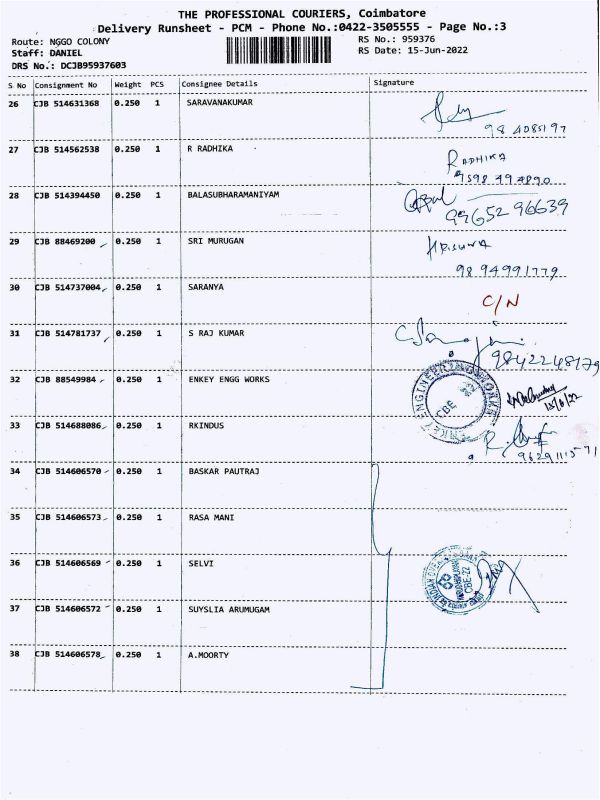 THE PROFESSIONAL COURIERS, Coimbatore
Delivery Runsheet - PCM - Phone No.:0422-3505555 - Page No.:3
Route: NGGO COLONY
RS No.: 959376
Staff: DANIEL
RS Date: 15-Jun-2022
DRS No.: DCJB95937603
S No Consignment No Weight PCS Consignee Details Signature
26 CJB 514631368 0.250 1 SARAVANAKUMAR
98 4085197
27 CJB 514562538 0.250 1 R RADHIKA RADHIKA
9598 494890
28 CJB 514394450 0.250 1 BALASUBHARAMANIYAM
99652 96639
29 CJB 88469200 0.250 1 SRI MURUGAN
98 94991779
30 CJB 514737004 0.250 1 SARANYA C/N
31 CJB 514781737 0.250 1 S RAJ KUMAR
9842248179
32 CJB 88549984 0.250 1 ENKEY ENGG WORKS
CBE
33 CJB 514688086 0.250 1 RKINDUS
9629111571
34 CJB 514606570 0.250 1 BASKAR PAUTRAJ
35 CJB 514606573 0.250 1 RASA MANI
36 CJB 514606569 0.250 1 SELVI
CBE-22
37 CJB 514606572 0.250 1 SUYSLIA ARUMUGAM
38 CJB 514606578 0.250 1 A.MOORTY